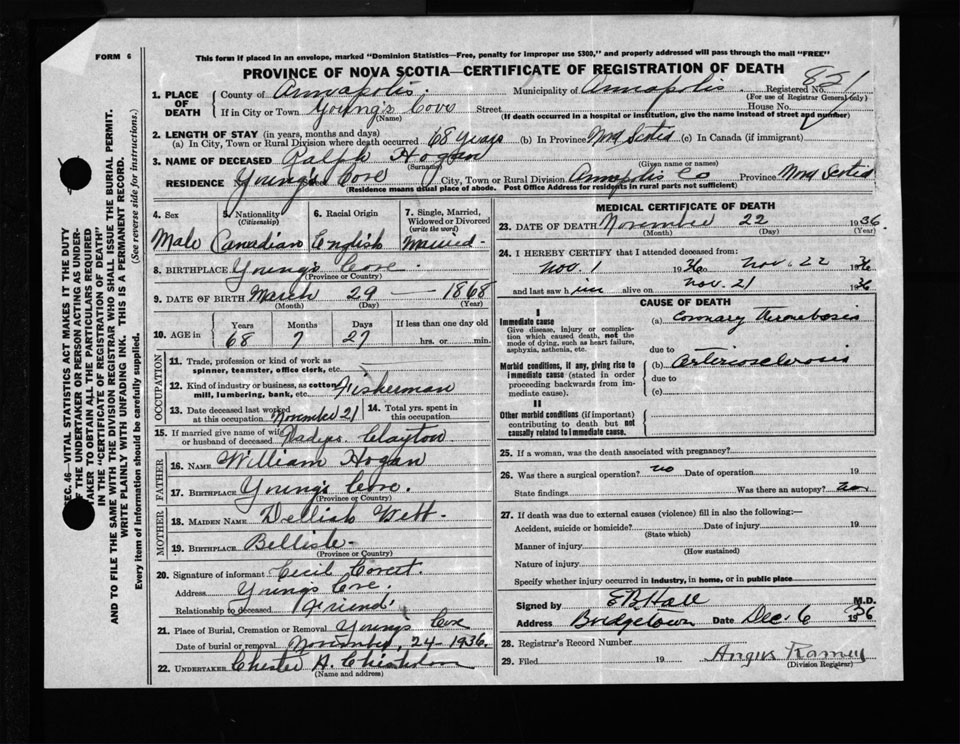 FORM 6
This form if placed in an envelope, marked "Dominion Statistics—Free, penalty for improper use $300," and properly addressed will pass through the mail "FREE"
PROVINCE OF NOVA SCOTIA—CERTIFICATE OF REGISTRATION OF DEATH
851
1. PLACE OF DEATH
County of Annapolis. Municipality of Annapolis. Registered No.
(For use of Registrar General only)
If in City or Town Young's Cove Street House No.
(Name) (If death occurred in a hospital or institution, give the name instead of street and number)
2. LENGTH OF STAY (in years, months and days)
(a) In City, Town or Rural Division where death occurred 68 years (b) In Province Nova Scotia (c) In Canada (if immigrant)
3. NAME OF DECEASED Ralph Hogan
(Surname) (Given name or names)
RESIDENCE No. Young's Cove City, Town or Rural Division Annapolis Co Province Nova Scotia
(Residence means usual place of abode. Post Office Address for residents in rural parts not sufficient)
4. Sex 5. Nationality (Citizenship) 6. Racial Origin 7. Single, Married, Widowed or Divorced (write the word)
Male Canadian English Married
8. BIRTHPLACE Young's Cove.
(Province or Country)
9. DATE OF BIRTH March 29 — 1868
(Month) (Day) (Year)
10. AGE in Years Months Days If less than one day old
68 7 27 hrs. or min.
OCCUPATION
11. Trade, profession or kind of work as spinner, teamster, office clerk, etc.
12. Kind of industry or business, as cotton mill, lumbering, bank, etc. Fisherman
13. Date deceased last worked at this occupation November 21 14. Total yrs. spent in this occupation
15. If married give name of wife or husband of deceased Gladys Clayton
FATHER
16. NAME William Hogan
17. BIRTHPLACE Young's Cove.
(Province or Country)
MOTHER
18. MAIDEN NAME
19. BIRTHPLACE Bellisle
(Province or Country)
20. Signature of informant Cecil Covert.
Address Young's Cove.
Relationship to deceased Friend
21. Place of Burial, Cremation or Removal Young's Cove
Date of burial or removal November, 24-1936.
22. UNDERTAKER Chester A.
(Name and address)
MEDICAL CERTIFICATE OF DEATH
23. DATE OF DEATH November 22 1936
(Month) (Day) (Year)
24. I HEREBY CERTIFY that I attended deceased from:
Nov. 1 1936 to Nov. 22 1936
and last saw him alive on Nov. 21 1936
CAUSE OF DEATH
I
Immediate cause (a) Coronary Thrombosis
Give disease, injury or complication which caused death, not the mode of dying, such as heart failure, asphyxia, asthenia, etc.
due to
Morbid conditions, if any, giving rise to immediate cause (stated in order proceeding backwards from immediate cause).
(b) Arteriosclerosis
due to
(c)
II
Other morbid conditions (if important) contributing to death but not causally related to immediate cause.
25. If a woman, was the death associated with pregnancy?
26. Was there a surgical operation? no Date of operation 19
State findings Was there an autopsy? no
27. If death was due to external causes (violence) fill in also the following:—
Accident, suicide or homicide? Date of injury 19
(State which)
Manner of injury
(How sustained)
Nature of injury
Specify whether injury occurred in industry, in home, or in public place
Signed by E B Hall M.D.
Address Bridgetown Date Dec. 6 1936
28. Registrar's Record Number
29. Filed 19 Angus Ramey
(Division Registrar)
SEC. 46—VITAL STATISTICS ACT MAKES IT THE DUTY
OF THE UNDERTAKER OR PERSON ACTING AS UNDERTAKER TO OBTAIN ALL THE PARTICULARS REQUIRED
IN THE "CERTIFICATE OF REGISTRATION OF DEATH"
AND TO FILE THE SAME WITH THE DIVISION REGISTRAR WHO SHALL ISSUE THE BURIAL PERMIT.
WRITE PLAINLY WITH UNFADING INK. THIS IS A PERMANENT RECORD.
Every item of information should be carefully supplied. (See reverse side for instructions.)